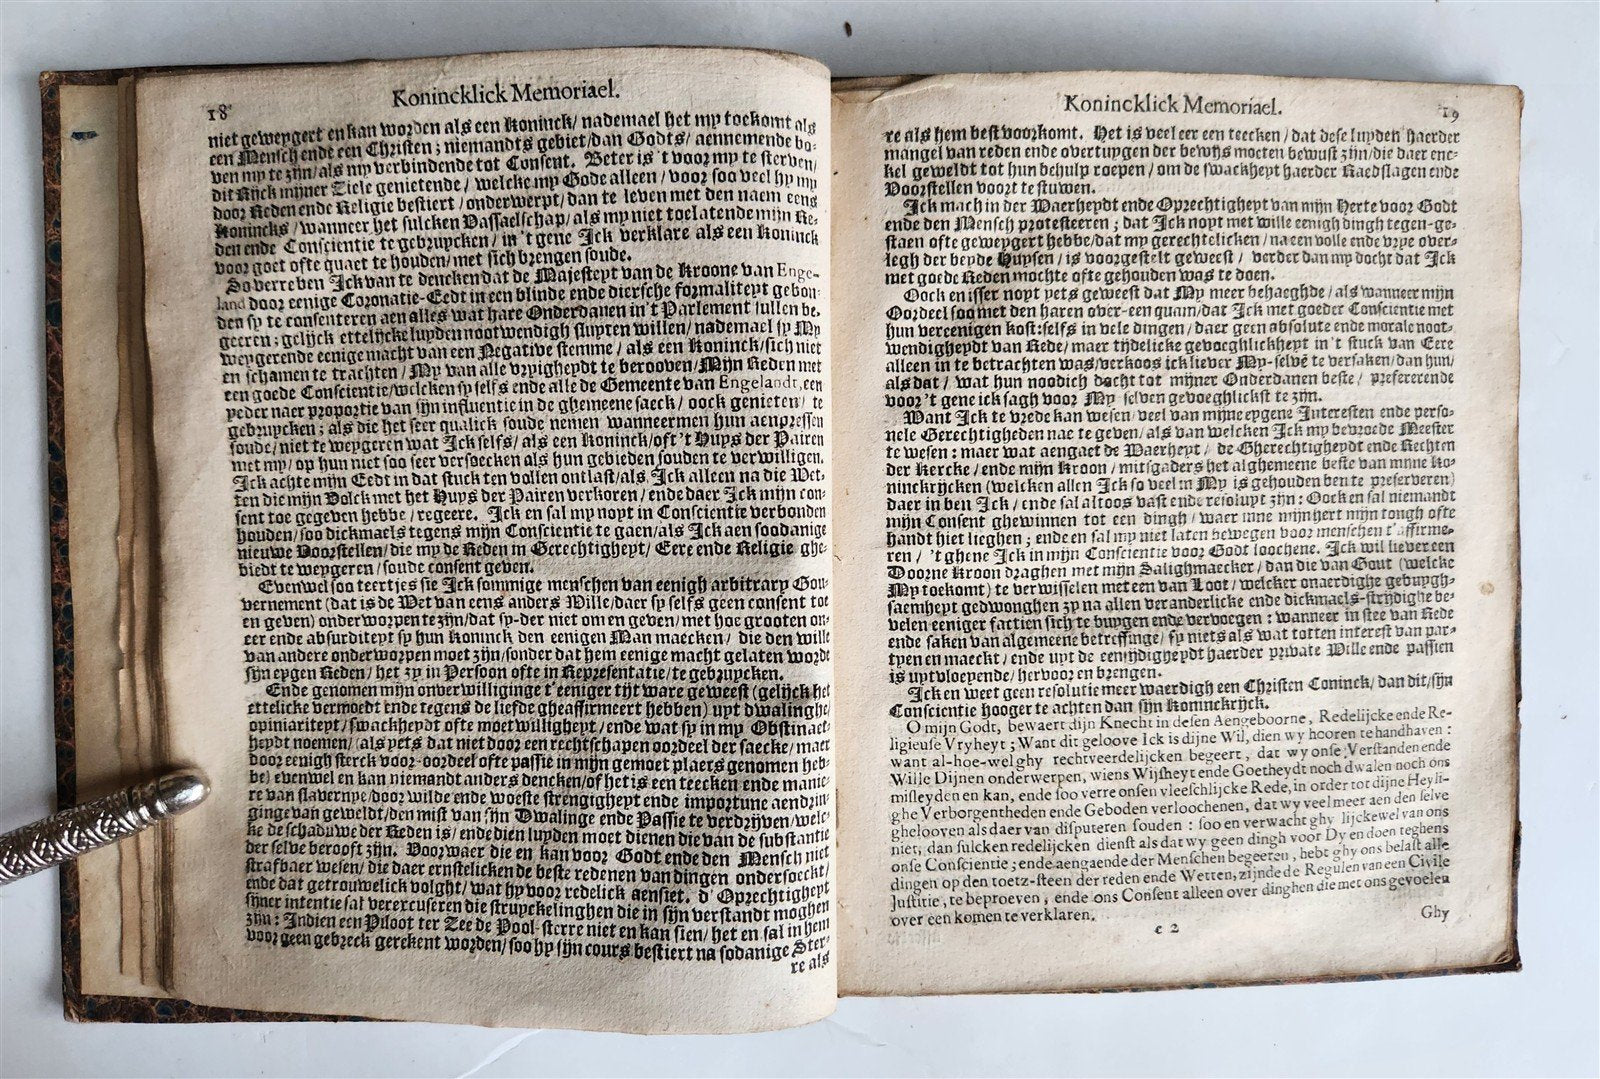 18
Konincklick Memoriael.
niet geweygert en kan worden als een Koninck/ nademael het my toekomt als
een Mensch ende een Christen; niemandts gebiet/dan Godts/ aennemende bo-
ven my te zijn/als my verbindende tot Consent. Beter is 't voor my te sterven/
dit Rijck mijner Ziele genietende/ welcke my Gode alleen/ voor soo veel hy my
door Reden ende Religie bestiert/onderwerpt/dan te leven met den naem eens
Konincks/wanneer het sulcken Vassaelschap/als my niet toelatende mijn Re-
den ende Conscientie te gebruycken/ in 't gene Ick verklare als een Koninck
voor goet ofte quaet te houden/met sich brengen soude.
So verre ben Ick van te dencken dat de Majesteyt van de Kroone van Enge-
land door eenige Coronatie-Eedt in een blinde ende diersche formaliteyt gebon-
den sy te consenteren aen alles wat hare Onderdanen in 't Parlement sullen be-
geeren; gelijck ettelijcke luyden nootwendigh sluyten willen/ nademael sy My
weygerende eenige macht van een Negative stemme/ als een Koninck/sich niet
en schamen te trachten/ My van alle vryigheydt te berooven/Mijn Reden met
een goede Conscientie/welcken sy selfs ende alle de Gemeente van Engelandt, een
yeder naer proportie van sijn influentie in de ghemeene saeck/ oock genieten/ te
gebruycken; als die het seer qualick soude nemen wanneermen hun aenpressen
soude/niet te weygeren wat Ick selfs/als een Koninck/oft 't Huys der Pairen
met my/ op hun niet soo seer versoecken als hun gebieden souden te verwilligen.
Ick achte mijn Eedt in dat stuck ten vollen ontlast/als Ick alleen na die Wet-
ten die mijn Volck met het Huys der Pairen verkoren/ ende daer Ick mijn con-
sent toe gegeven hebbe/regeere. Ick en sal my noyt in Conscientie verbonden
houden/soo dickmaels tegens mijn Conscientie te gaen/als Ick aen soodanige
nieuwe Voorstellen/die my de Reden in Gerechtigheyt/ Eere ende Religie ghe-
biedt te weygeren/soude consent geven.
Evenwel soo teertjes sie Ick sommige menschen van eenigh arbitrary Gou-
vernement (dat is de Wet van eens anders Wille/daer sy selfs geen consent tot
en geven) onderworpen te zijn/dat sy-der niet om en geven/met hoe grooten on-
eer ende absurditeyt sy hun Koninck den eenigen Man maecken/ die den wille
van andere onderworpen moet zijn/sonder dat hem eenige macht gelaten worde
sijn eygen Reden/ het zy in Persoon ofte in Representatie/te gebruycken.
Ende genomen mijn onverwilliginge t' eeniger tijt ware geweest (gelijck het
ettelicke vermoedt ende tegens de liefde gheaffirmeert hebben) uyt dwalinghe/
opiniariteyt/swackheydt ofte moetwilligheyt/ende wat sy in my Obstinaet-
heydt noemen/ (als yets dat niet door een rechtschapen oordeel der saecke/ maer
door eenigh sterck voor-oordeel ofte passie in mijn gemoet plaets genomen heb-
be) evenwel en kan niemandt anders dencken/of het is een teecken ende manie-
re van slavernye/door wilde ende woeste strengigheyt ende importune aendrin-
ginge van geweldt/den mist van sijn Dwalinge ende Passie te verdrijven/welc-
ke de schaduwe der Reden is/ ende dien luyden moet dienen die van de substantie
der selve berooft zijn. Voorwaer die en kan voor Godt ende den Mensch niet
strafbaer wesen/ die daer ernstelicken de beste redenen van dingen ondersoeckt/
ende dat getrouwelick volght/wat hy voor redelick aensiet. d' Oprechtigheyt
sijner intentie sal verexcuseren die struyckelinghen die in sijn verstandt moghen
zijn: Indien een Piloot ter Zee de Pool-sterre niet en kan sien/ het en sal in hem
voor geen gebreck gerekent worden/soo hy sijn cours bestiert na sodanige Ster-
re als
Konincklick Memoriael.
19
re als hem best voorkomt. Het is veel eer een teecken/ dat dese luyden haerder
mangel van reden ende overtuygender bewijs moeten bewust zijn/die daer enc-
kel geweldt tot hun behulp roepen/om de swackheyt haerder Raedslagen ende
Voorstellen voort te stuwen.
Ick mach in der Waerheydt ende Oprechtigheyt van mijn Herte voor Godt
ende den Mensch protesteeren; dat Ick noyt met wille eenigh dingh tegen-ge-
staen ofte geweygert hebbe/dat my gerechtelicken/na een volle ende vrye over-
legh der beyde Huysen/is voorgestelt geweest/ verder dan my docht dat Ick
met goede Reden mochte ofte gehouden was te doen.
Oock en isser noyt yets geweest dat My meer behaeghde/als wanneer mijn
Oordeel soo met den haren over-een quam/dat Ick met goeder Conscientie met
hun vereenigen kost: selfs in vele dingen/ daer geen absolute ende morale noot-
wendigheydt van Rede/ maer tijdelicke gevoeghlickheyt in 't stuck van Eere
alleen in te betrachten was/verkoos ick liever My-selvē te versaken/dan hun/
als dat/ wat hun noodich docht tot mijner Onderdanen beste/ prefererende
voor 't gene ick sagh voor My-selven gevoeghlickst te zijn.
Want Ick te vrede kan wesen/veel van mijne eygene Interesten ende perso-
nele Gerechtigheden nae te geven/als van welcken Ick my bevroede Meester
te wesen: maer wat aengaet de Waerheyt/ de Gherechtigheydt ende Rechten
der Kercke/ende mijn Kroon/ mitsgaders het alghemeene beste van mijne Ko-
ninckrijcken (welcken allen Ick so veel in My is gehouden ben te preserveren)
daer in ben Ick/ ende sal altoos vast ende resoluyt zijn: Oock en sal niemandt
mijn Consent ghewinnen tot een dingh/ waer inne mijn hert mijn tongh ofte
handt hiet lieghen; ende en sal my niet laten bewegen voor menschen t' affirme-
ren/ 't ghene Ick in mijn Conscientie voor Godt loochene. Ick wil liever een
Doorne Kroon draghen met mijn Salighmaecker/dan die van Gout (welcke
My toekomt) te verwisselen met een van Loot/ welcker onaerdighe gebuygh-
saemheyt gedwonghen zy na allen veranderlicke ende dickmaels-strydighe be-
velen eeniger factien sich te buygen ende vervoegen: wanneer in stee van Rede
ende saken van algemeene betreffinge/ sy niets als wat totten interest van par-
tyen en maeckt/ ende uyt de eensijdigheydt haerder private Wille ende passien
is uytvloeyende/hervoor en brengen.
Ick en weet geen resolutie meer waerdigh een Christen Coninck/dan dit/sijn
Conscientie hooger te achten dan sijn Koninckrijck.
O mijn Godt, bewaert dijn Knecht in desen Aengeboorne, Redelijcke ende Re-
ligieuse Vryheyt; Want dit geloove Ick is dijne Wil, dien wy hooren te handhaven:
want al-hoe-wel ghy rechtveerdelijcken begeert, dat wy onse Verstanden ende
Wille Dijnen onderwerpen, wiens Wijsheyt ende Goetheydt noch dwalen noch ons
misleyden en kan, ende soo verre onsen vleeschlijcke Rede, in order tot dijne Heyli-
ghe Verborgentheden ende Geboden verloochenen, dat wy veel meer aen den selve
ghelooven als daer van disputeren souden: soo en verwacht ghy lijckewel van ons
niet, dan sulcken redelijcken dienst als dat wy geen dingh voor Dy en doen teghens
onse Conscientie; ende aengaende der Menschen begeeren, hebt ghy ons belast alle
dingen op den toetz-steen der reden ende Wetten, zijnde de Regulen van een Civile
Justitie, te beproeven, ende ons Consent alleen over dinghen die met ons gevoelen
over een komen te verklaren.
c 2
Ghy